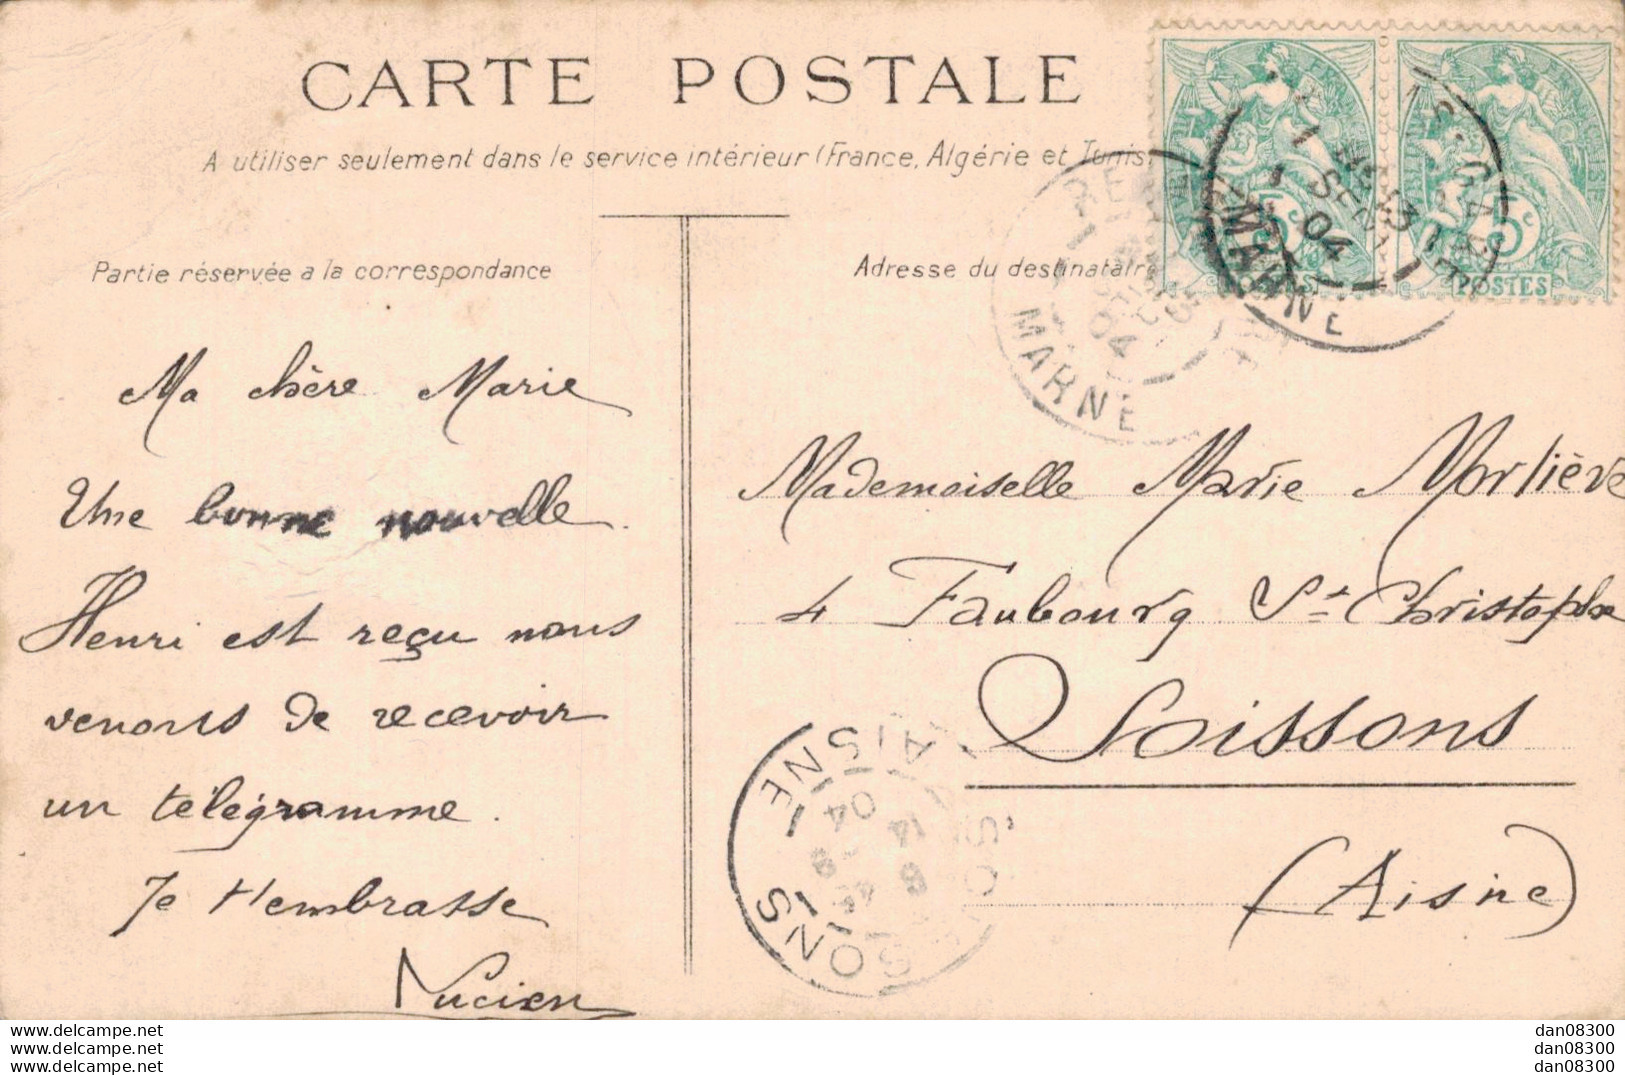 CARTE POSTALE
A utiliser seulement dans le service intérieur (France, Algérie et Tunis
Partie réservée a la correspondance
Ma chère Marie
Une bonne nouvelle.
Henri est reçu nous
venons de recevoir
un télégramme.
Je t'embrasse
Lucien
Adresse du destinataire
Mademoiselle Marie Morlière
4 Faubourg St Christophe
Soissons
(Aisne)
5c 5c
POSTES
MARNE
04
MARNE
SEPT
04
SOISSONS
AISNE
04
www.delcampe.net
www.delcampe.net
www.delcampe.net
dan08300
dan08300
dan08300